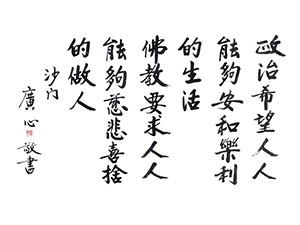 政治希望人人
能夠安和樂利
的生活
佛教要求人人
能夠慈悲喜捨
的做人
沙門
廣心敬書